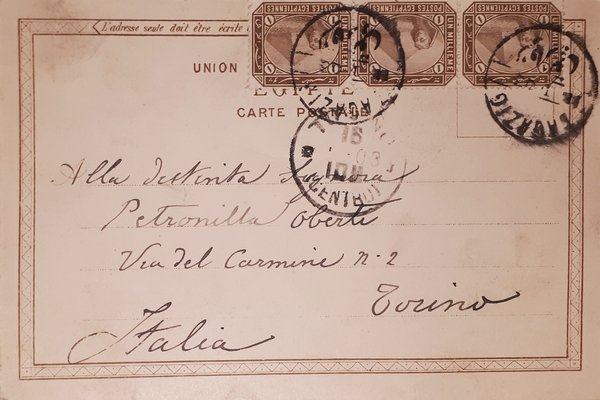 L'adresse seule doit être écrite
UN MILLIEME
POSTES EGYPTIENNES
UN MILLIEME
POSTES EGYPTIENNES
UN MILLIEME
POSTES EGYPTIENNES
UNION
EGYPTE
CARTE POSTALE
ZAGAZIG
TORINO
16
03
CENTRO
Alla distinta Signora
Petronilla Oberti
Via del Carmine n-2
Torino
Italia